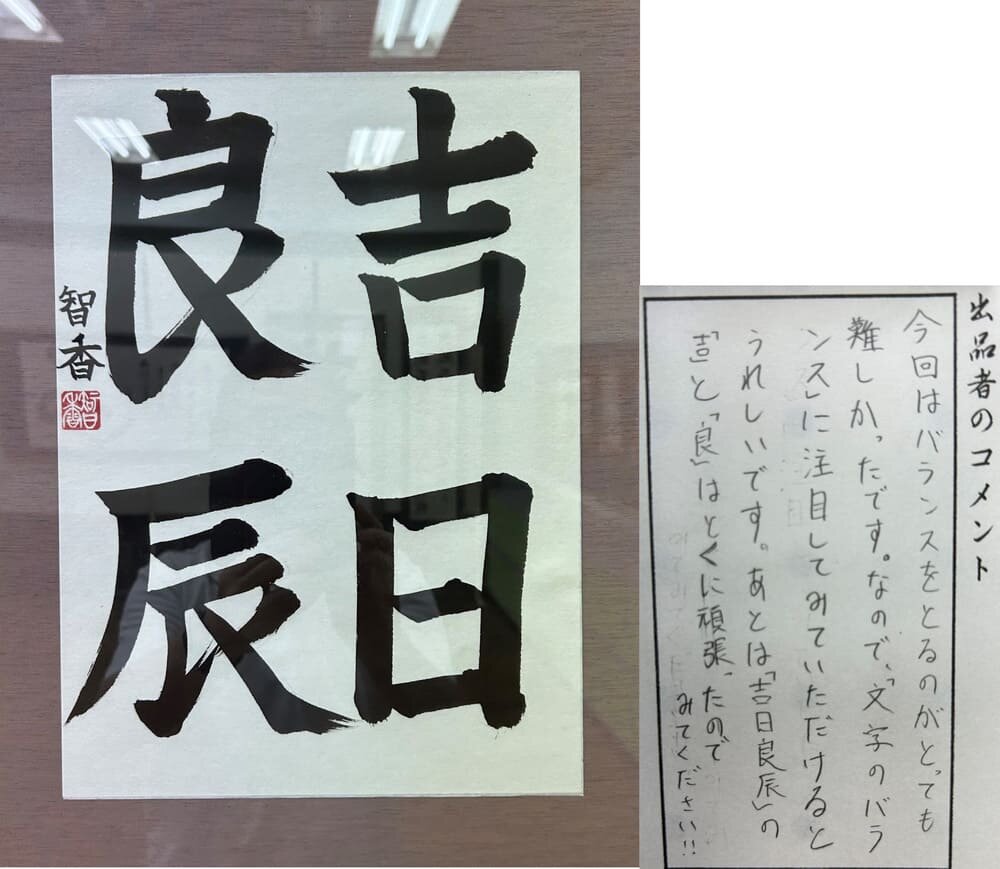 吉日
良辰
智香
智香
出品者のコメント
今回はバランスをとるのがとっても
難しかったです。なので、「文字のバラ
ンス」に注目してみていただけると
うれしいです。あとは「吉日良辰」の
「吉」と「良」はとくに頑張ったので
みてください!!